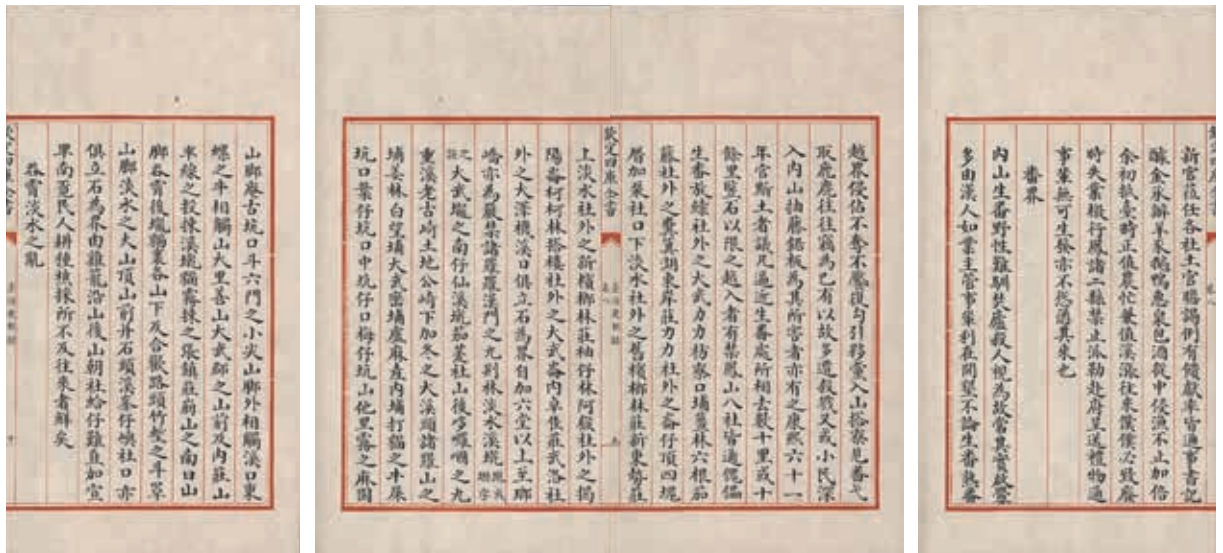 欽定四庫全書
卷八
新官蒞任各社土官贍謁例有饋獻率皆通事書記
醵金承辦羊豕鵝鴨惠泉包酒從中侵漁不止加倍
余初抵臺時正值農忙兼值溪漲往來僕僕必致廢
時失業檄行鳳諸二縣禁止派勒赴府呈送禮物通
事輩無可生發亦不慫遒其來也
番界
內山生番野性難馴焚廬殺人視為故常其實啟釁
多由漢人如業主管事輩利在開墾不論生番熟番
越界侵佔不奪不饜復勾引夥黨入山搭寮見番弋
取鹿麂往往竊為已有以故多遭殺戮又或小民深
入內山抽藤鋸板為其所害者亦有之康熙六十一
年官斯土者議凡逼近生番處所相去數十里或十
餘里豎石以限之越入者有禁鳳山八社皆通傀儡
生番放縤社外之大武力力枋寮口埔薑林六根茄
藤社外之糞箕湖東岸莊力力社外之崙仔頂四塊
厝加泵社口下淡水社外之舊檳榔林莊新東勢莊
欽定四庫全書
臺海使槎錄
卷八
九
上淡水社外之新檳榔林莊柚仔林阿猴社外之揭
陽崙柯柯林搭樓社外之大武崙內卓佳莊武洛社
外之大澤機溪口俱立石為界自加六堂以上至瑯
嶠亦為嚴禁諸羅羅漢門之九荊林淡水溪墘
之大武壠之南仔仙溪墘茄茇社山後哆囉嘓之九
重溪老古崎土地公崎下加冬之大溪頭諸羅山之
埔姜林白望埔大武巒埔盧麻產內埔打貓之牛屎
坑口葉仔坑口中坑仔口梅仔坑山他里霧之麻園
山腳庵古坑口斗六門之小尖山腳外相觸溪口東
螺之牛相觸山大里善山大武郡之山前及內莊山
半線之投揀溪墘貓霧揀之張鎮莊崩山之南日山
腳吞霄後壠貓裏各山下及合歡路頭竹塹之斗罩
山腳淡水之大山頂山前并石頭溪峯仔嶼社口亦
俱立石為界由雞籠沿山後山朝社蛤仔難直加宣
卑南覓民人耕種樵採所不及往來者鮮矣
吞霄淡水之亂
欽定四庫全書
臺海使槎錄
十